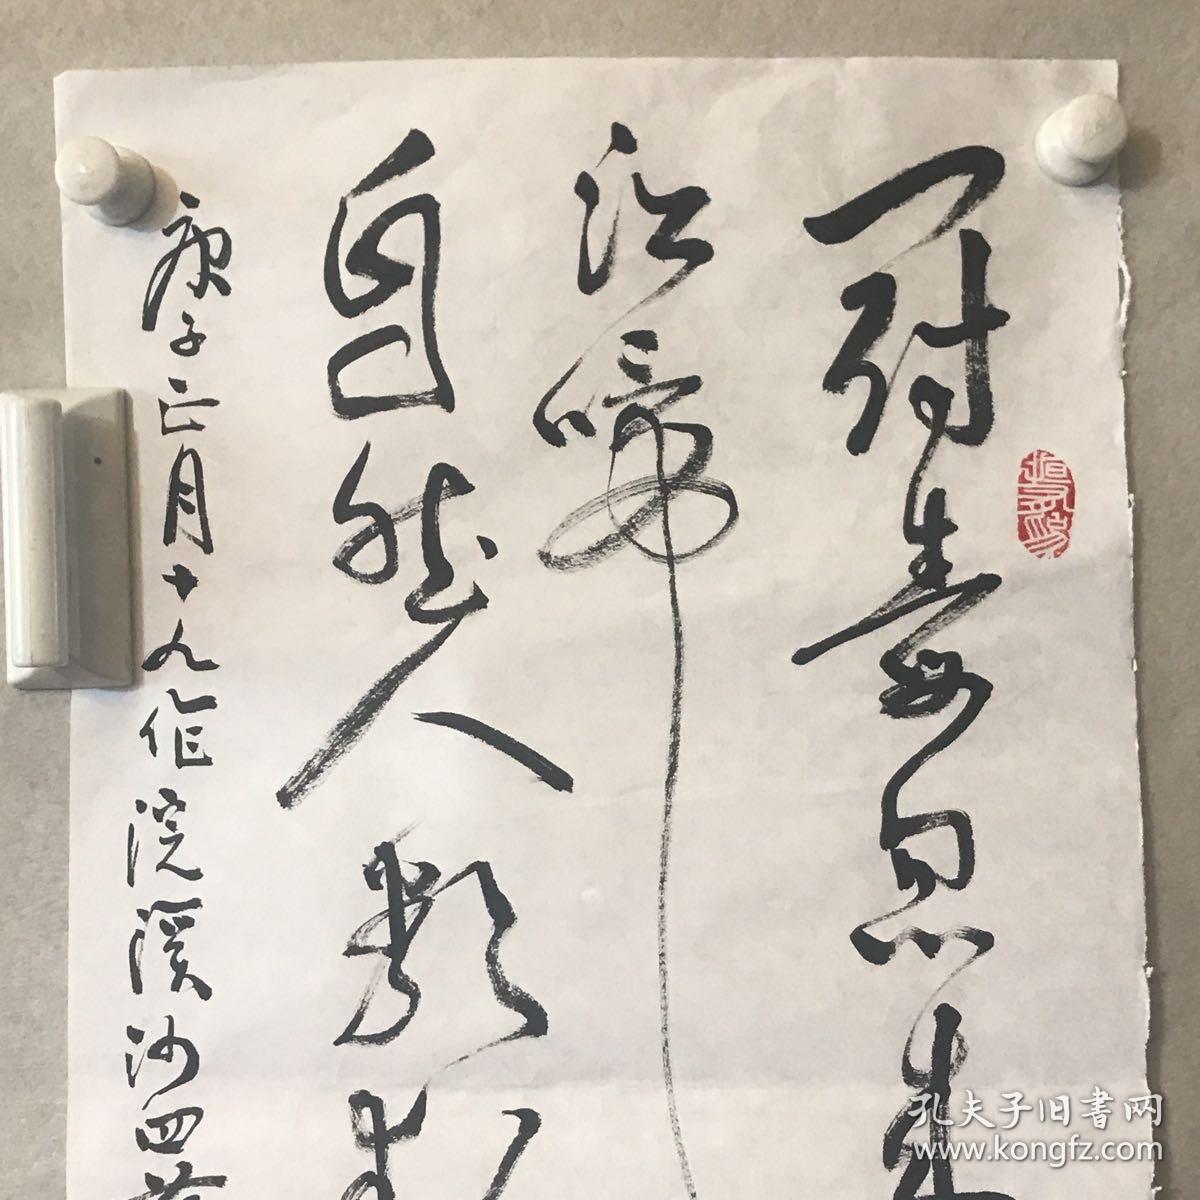 冠毒忽来
江啼
自然人类
庚子正月十九作浣溪沙四首
孔夫子旧书网
www.kongfz.com